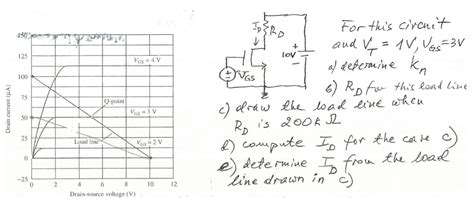 150
125
100
75
50
25
0
−25
0 2 4 6 8 10 12
Drain current (µA)
Drain-source voltage (V)
V_GS = 4 V
Q-point
V_GS = 3 V
Load line
V_GS = 2 V
I_D
R_D
10V
V_GS
For this circuit
and V_T = 1V, V_GS=3V
a) determine k_n
b) R_D for this load line
c) draw the load line when
R_D is 200kΩ
d) compute I_D for the case c)
e) determine I_D from the load
line drawn in c)